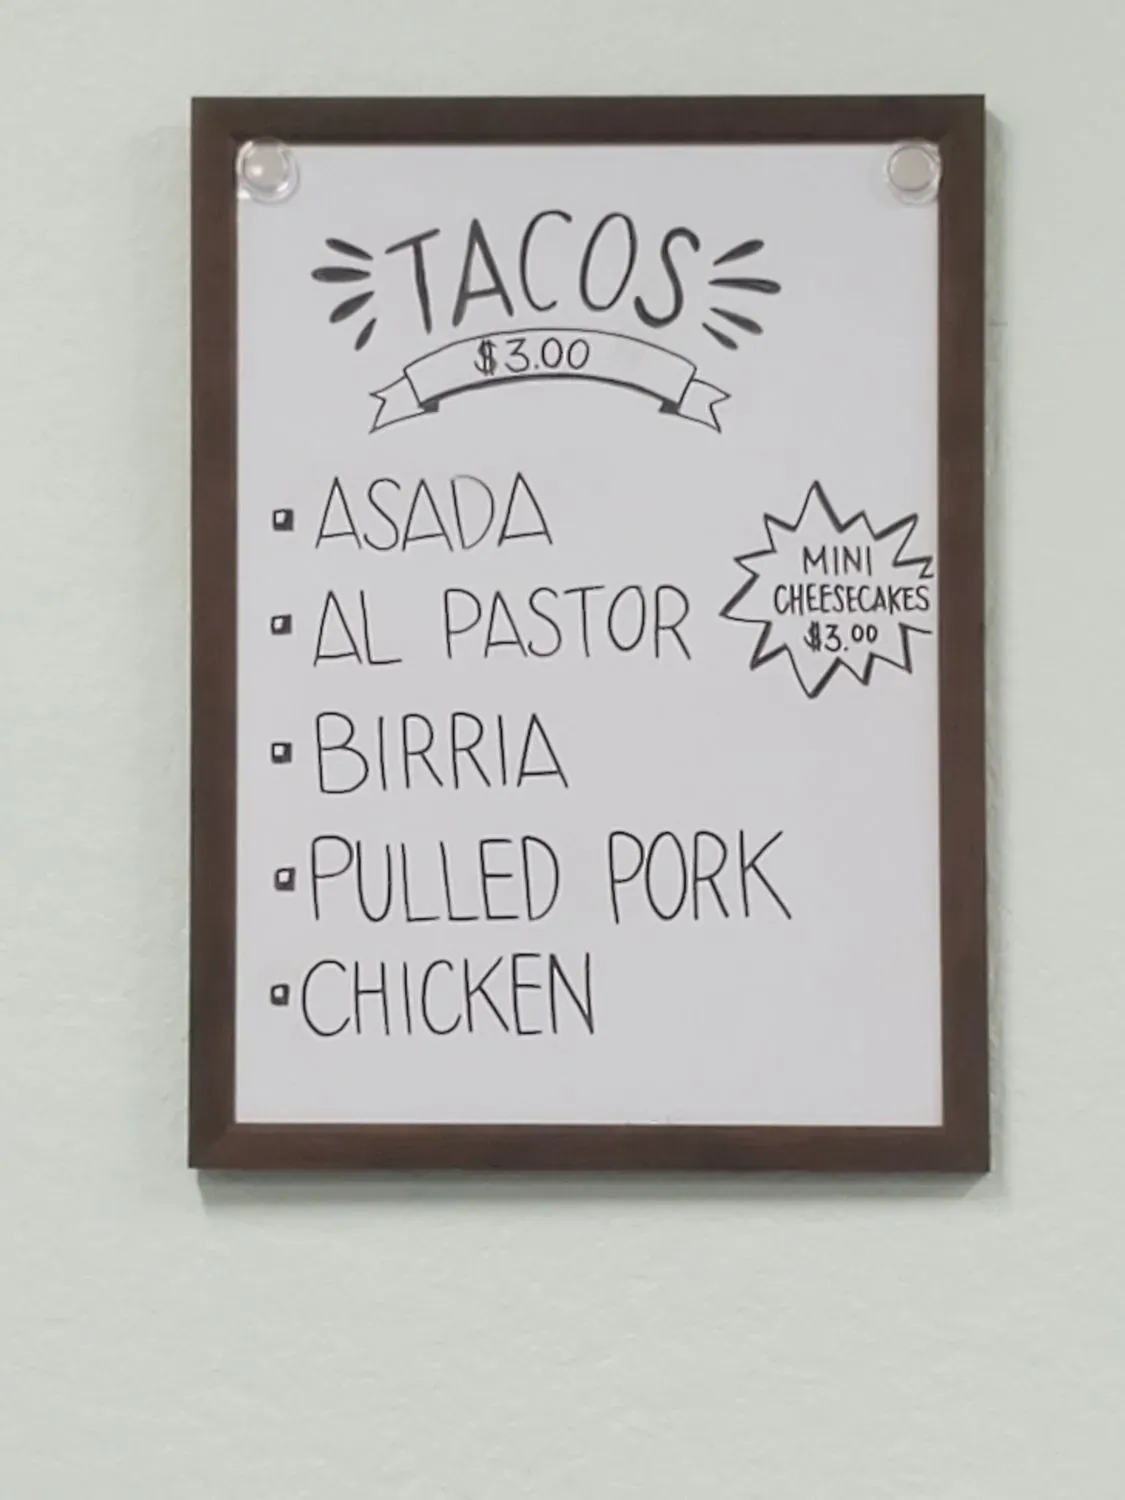 TACOS
$3.00
ASADA
AL PASTOR
BIRRIA
PULLED PORK
CHICKEN
MINI
CHEESECAKES
$3.00